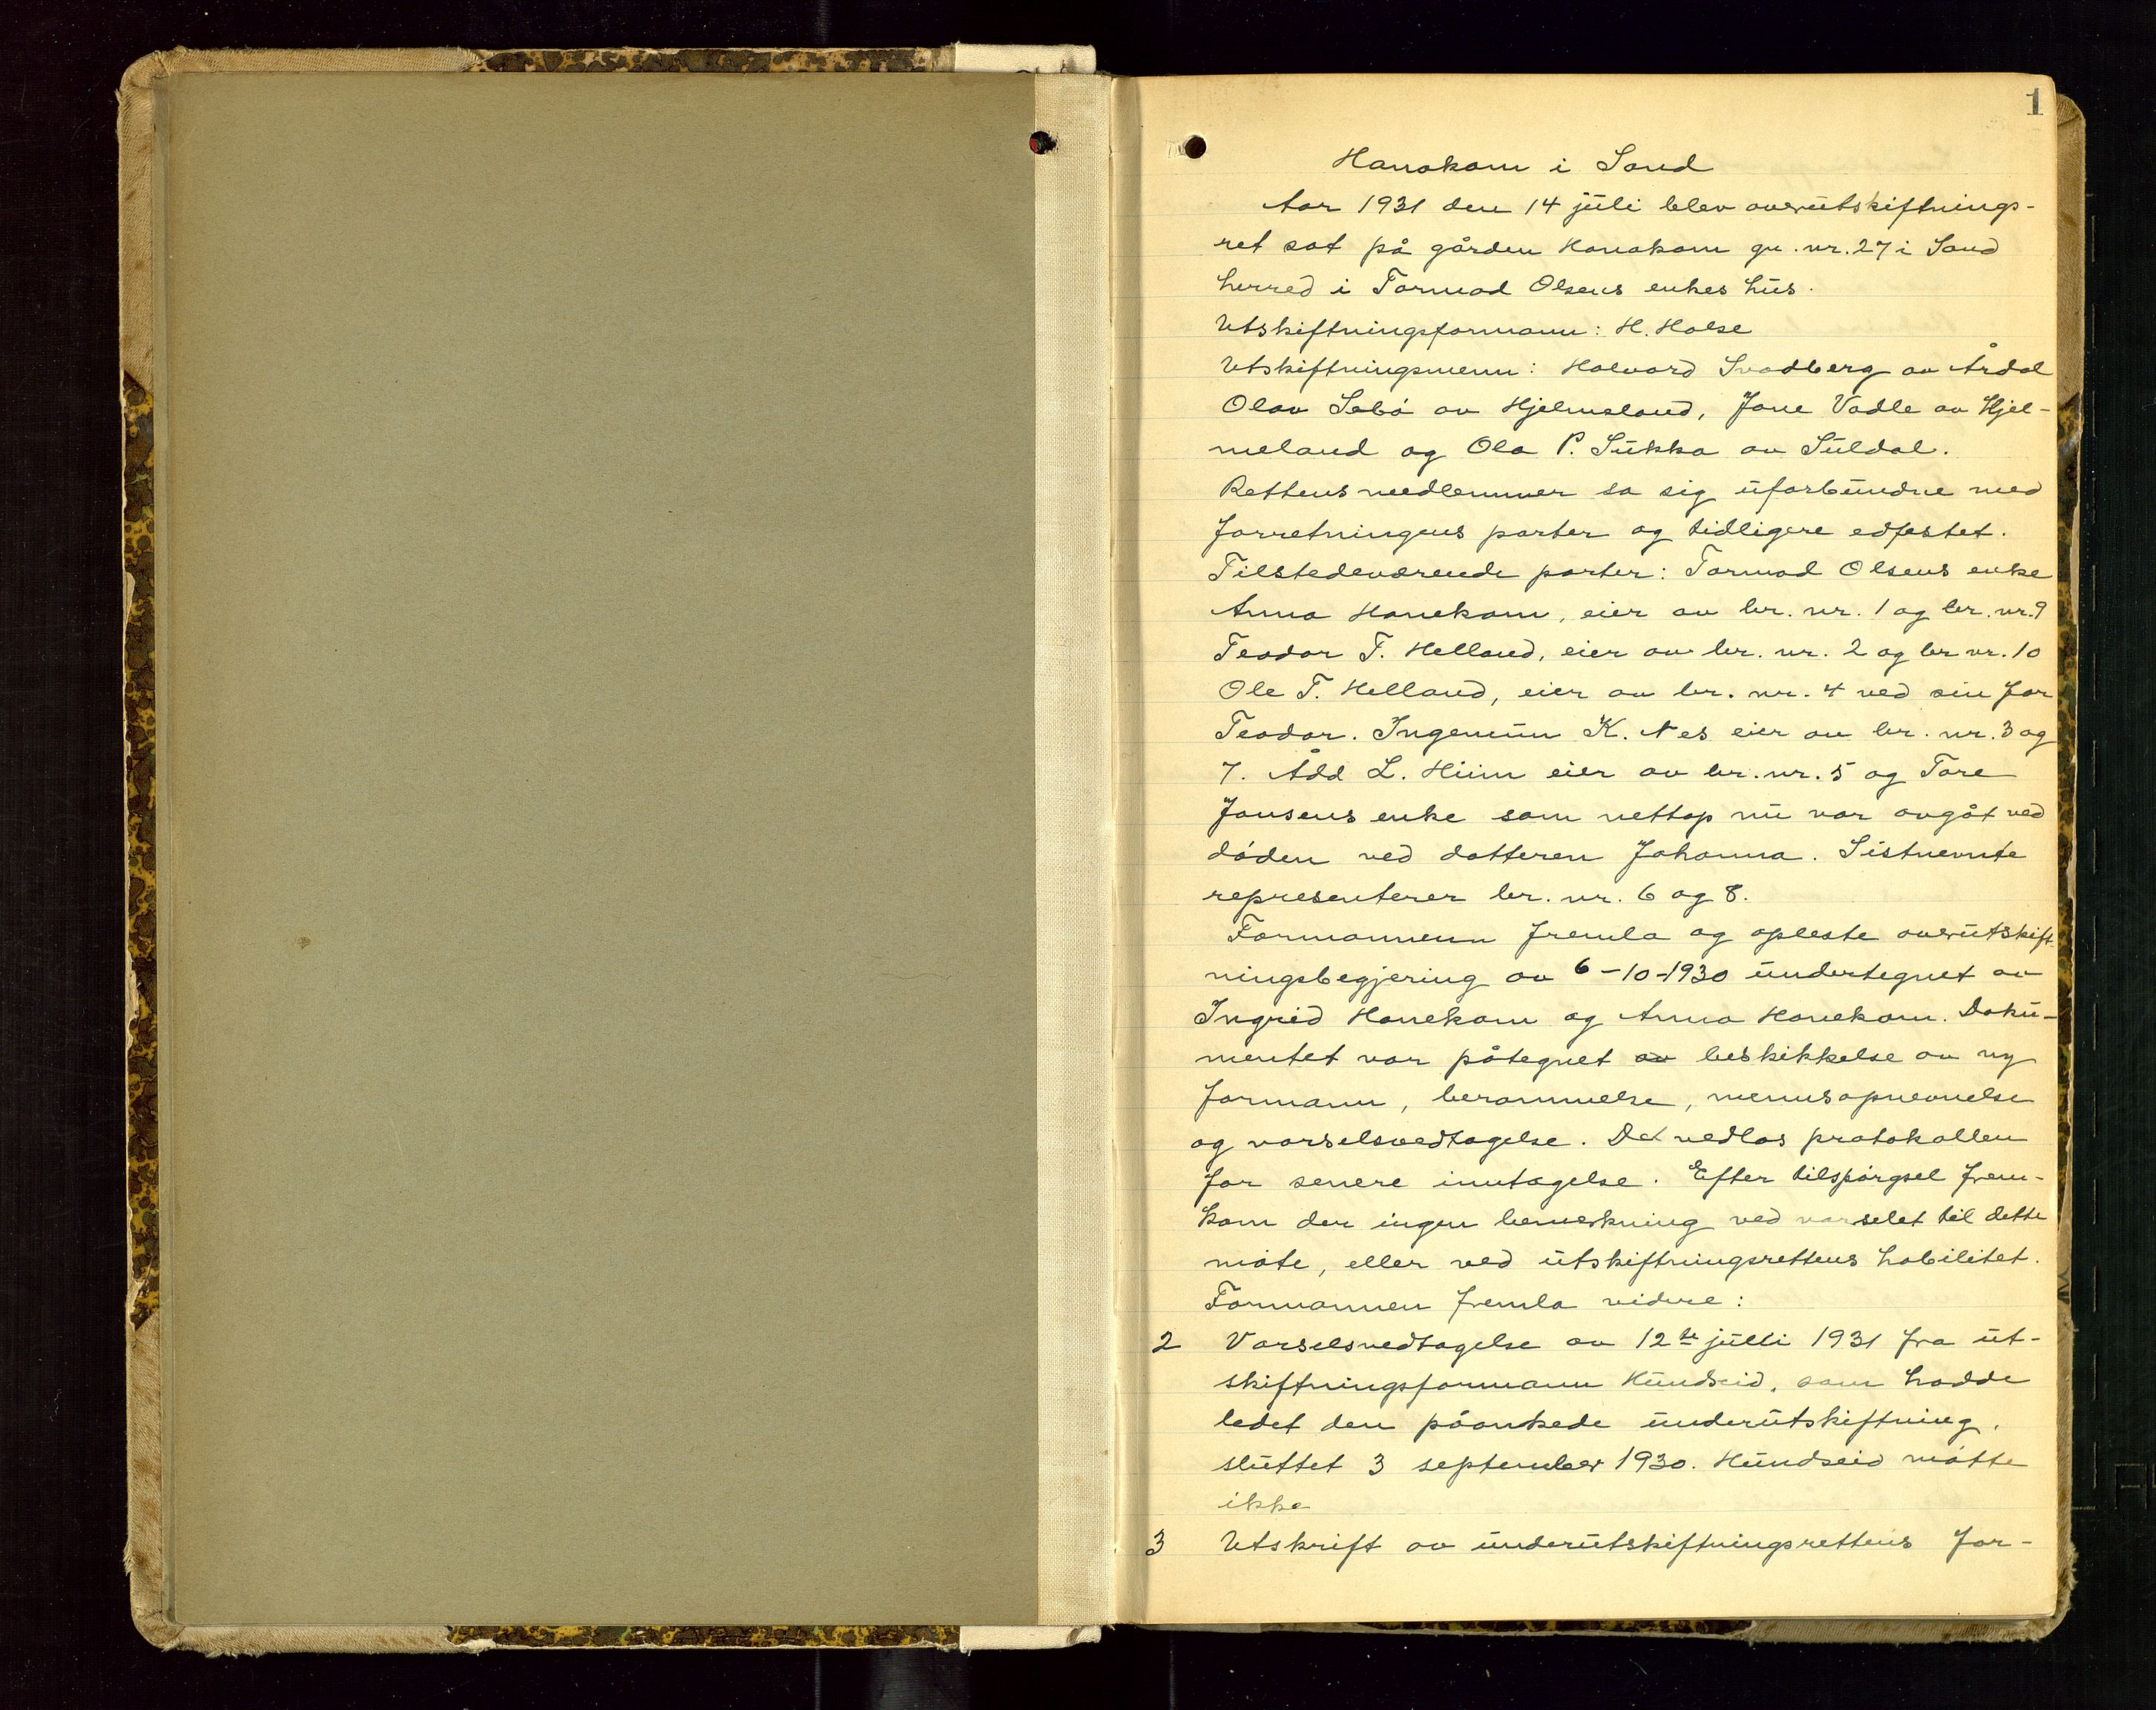 1
Hanakam i Sand
Aar 1931 den 14 juli blev overutskiftnings-
ret sat på gården Hanakam gn. nr. 27 i Sand
herred i Tormod Olsens enkes hus.
Utskiftningsformann: H. Halse
Utskiftningsmenn: Halvard Svadberg av Årdal
Olav Sebö av Hjelmeland, Jone Vadle av Hjel-
meland og Ola P. Sukka av Suldal.
Rettens medlemmer sa sig uforbundne med
forretningens parter og tidligere edfestet.
Tilstedeværende parter: Tormod Olsens enke
Anna Hanekam, eier av br. nr. 1 og br. nr. 9
Teodor T. Helland, eier av br. nr. 2 og br nr. 10
Ole T. Helland, eier av br. nr. 4 ved sin far
Teodor. Ingemun K. Nes eier av br. nr. 3 og
7. Ådd L. Hiim eier av br. nr. 5 og Tore
Jonsens enke som nettop nu var avgåt ved
döden ved datteren Johanna. Sistnevnte
representerer br. nr. 6 og 8.
Formannenn fremla og opleste overutskift-
ningsbegjering av 6-10-1930 undertegnet av
Ingrid Hanekam og Anna Hanekam. Doku-
mentet var påtegnet av beskikkelse av ny
formann, berammelse, mennsopnevnelse
og varselsvedtagelse. Det vedlas protokollen
for senere inntagelse. Efter tilspörgsel frem-
kom der ingen bemerkning ved varselet til dette
möte, eller ved utskiftningsrettens habilitet.
Formannen fremla videre:
2 Varselsvedtagelse av 12te julli 1931 fra ut-
skiftningsformann Hundseid, som hadde
ledet den påankede underutskiftning,
sluttet 3 september 1930. Hundseid mötte
ikke
3 Utskrift av underutskiftningsrettens for-